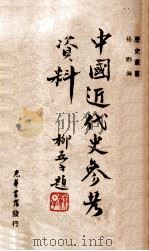 歷史叢書
楊野編
中國近代史參考
資料
柳亞子題
光華書店發行